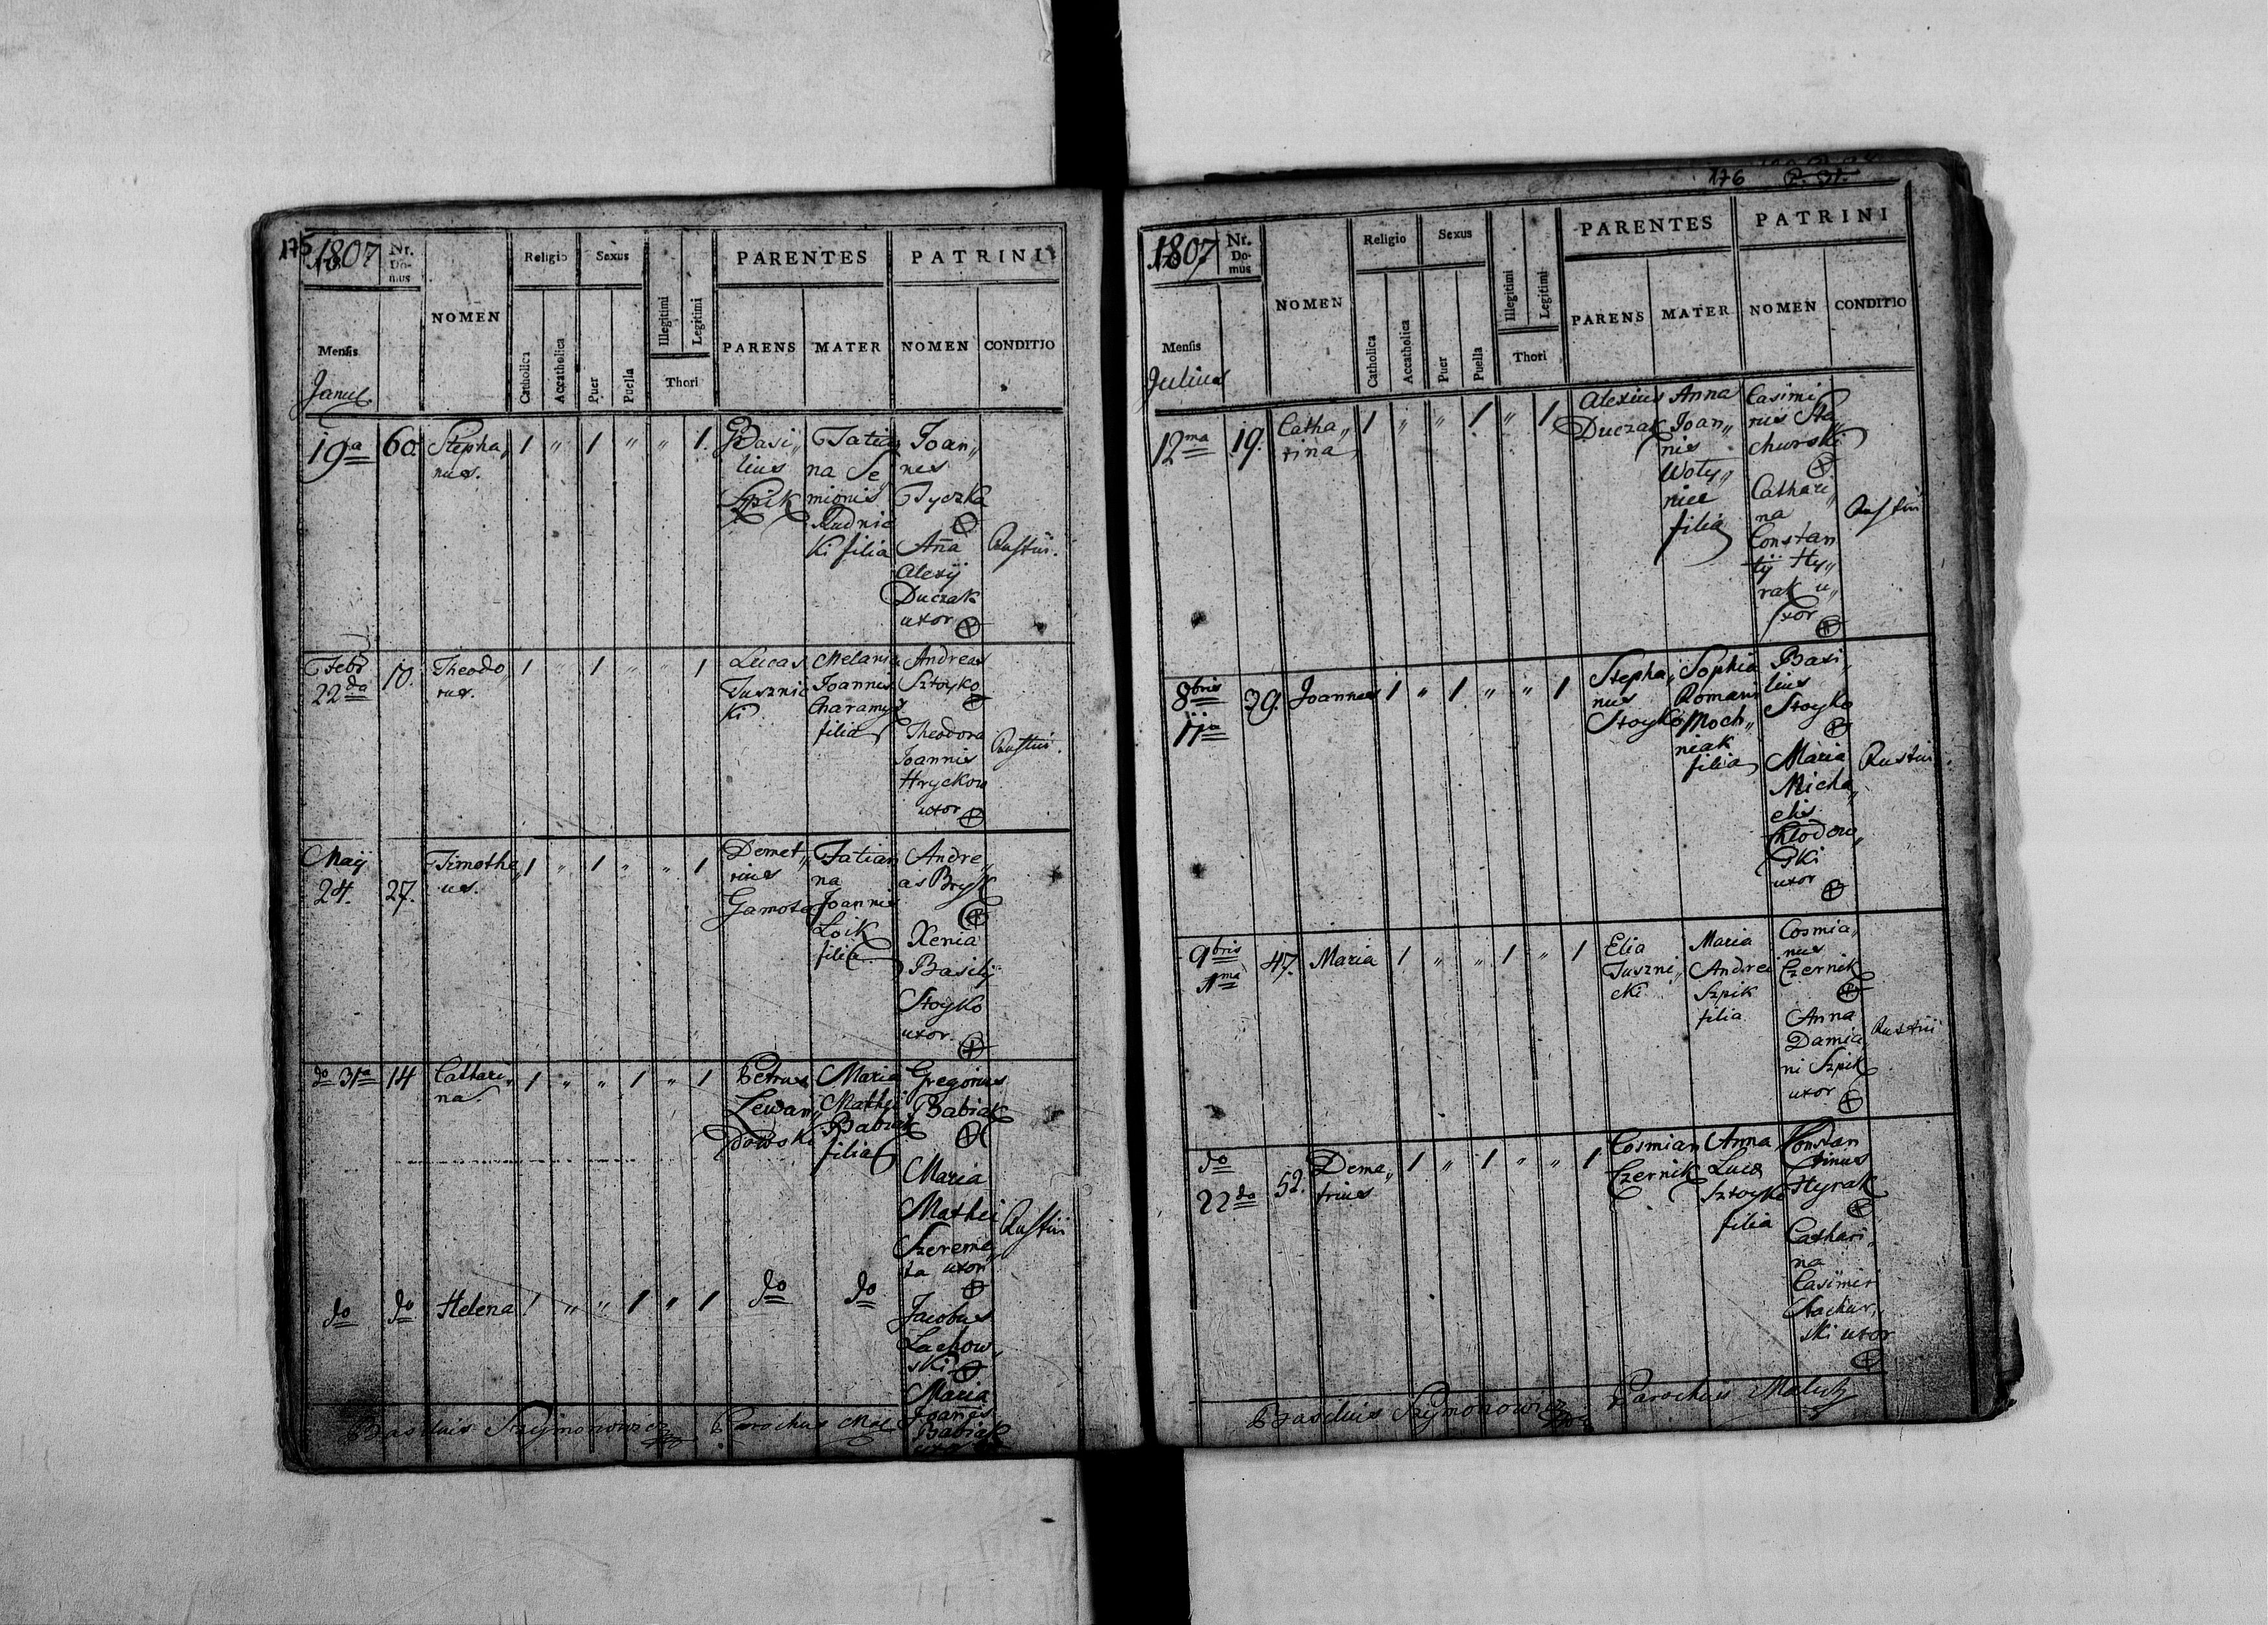 175
1807
Nr. Do-mus
NOMEN
Religio
Sexus
Illegitimi
Legitimi
PARENTES
PATRINI
Mensis
Catholica
Accatholica
Puer
Puella
Thori
PARENS
MATER
NOMEN
CONDITIO
19a
60.
Stepha„
nus.
1 „ 1 „ „ 1.
Basi„
lius
Szpik
Tatia
na Se
mionis
Rudnic
ki filia
Joan„
nes
Tyczka
Anna
Alexij
Duczak
uxor
Rustici.
Feb.
22da
10.
Theodo„
rus.
1 „ 1 „ „ 1
Lucas
Jusznic
ki
Melania
Joannis
Charamy
filia
Andreas
Sztoyko
Theodora
Joannis
Hryckow
uxor
Rustici.
Maij
24.
27.
Timothe„
us.
1 „ 1 „ „ 1
Demet„
rius
Gamota
Tatian
na
Joannis
Loik
filia
Andre„
as Bryk
Xenia
Basilij
Stoyko
uxor.
do 31ma
14
Cathari„
na.
1 „ „ 1 „ 1
Petrus
Lewan„
dowski
Maria
Mathei
Babiak
filia
Gregorius
Babiak
Maria
Mathei
Szereme„
ta uxor
Rustici
do
do
Helena
1 „ „ 1 „ 1
do
do
Jacobus
Lachow„
ski
Maria
Joannis
Babiak
uxor
Basilius Szymonowicz Parochus
176
1807
Nr. Do-mus
NOMEN
Religio
Sexus
Illegitimi
Legitimi
PARENTES
PATRINI
Mensis
Julius
Catholica
Accatholica
Puer
Puella
Thori
PARENS
MATER
NOMEN
CONDITIO
12ma
19.
Catha„
rina
1 „ „ 1 „ 1
Alexius
Duczak
Anna
Joan„
nis
Woty„
niec
filia
Casimi
rus Sta
churski
Cathari„
na
Constan
tij Hy„
rak u„
xor
Rustici
8bris
29.
Joannes
1 „ 1 „ „ 1
Stepha„
nus
Stoyko
Sophia
Romani
Moch„
niak
filia
Basi„
lius
Stoyko
Maria
Micha„
elis
Chlodow„
ski
uxor
Rustici.
9bris
1ma
47.
Maria
1 „ „ 1 „ 1
Elia
Juszni„
cki
Maria
Andrei
Szpik
filia
Cosmia„
nus
Czernik
Anna
Damia
ni Szpik
uxor
Rustici
do
22da
52.
Deme„
trius
1 „ 1 „ „ 1
Cosmian
Czernik
Anna
Luca
Sztoyko
filia
Constan
tinus
Hyrak
Cathari„
na
Casimiri
Stachur„
ski uxor
Basilius Szymonowicz Parochus